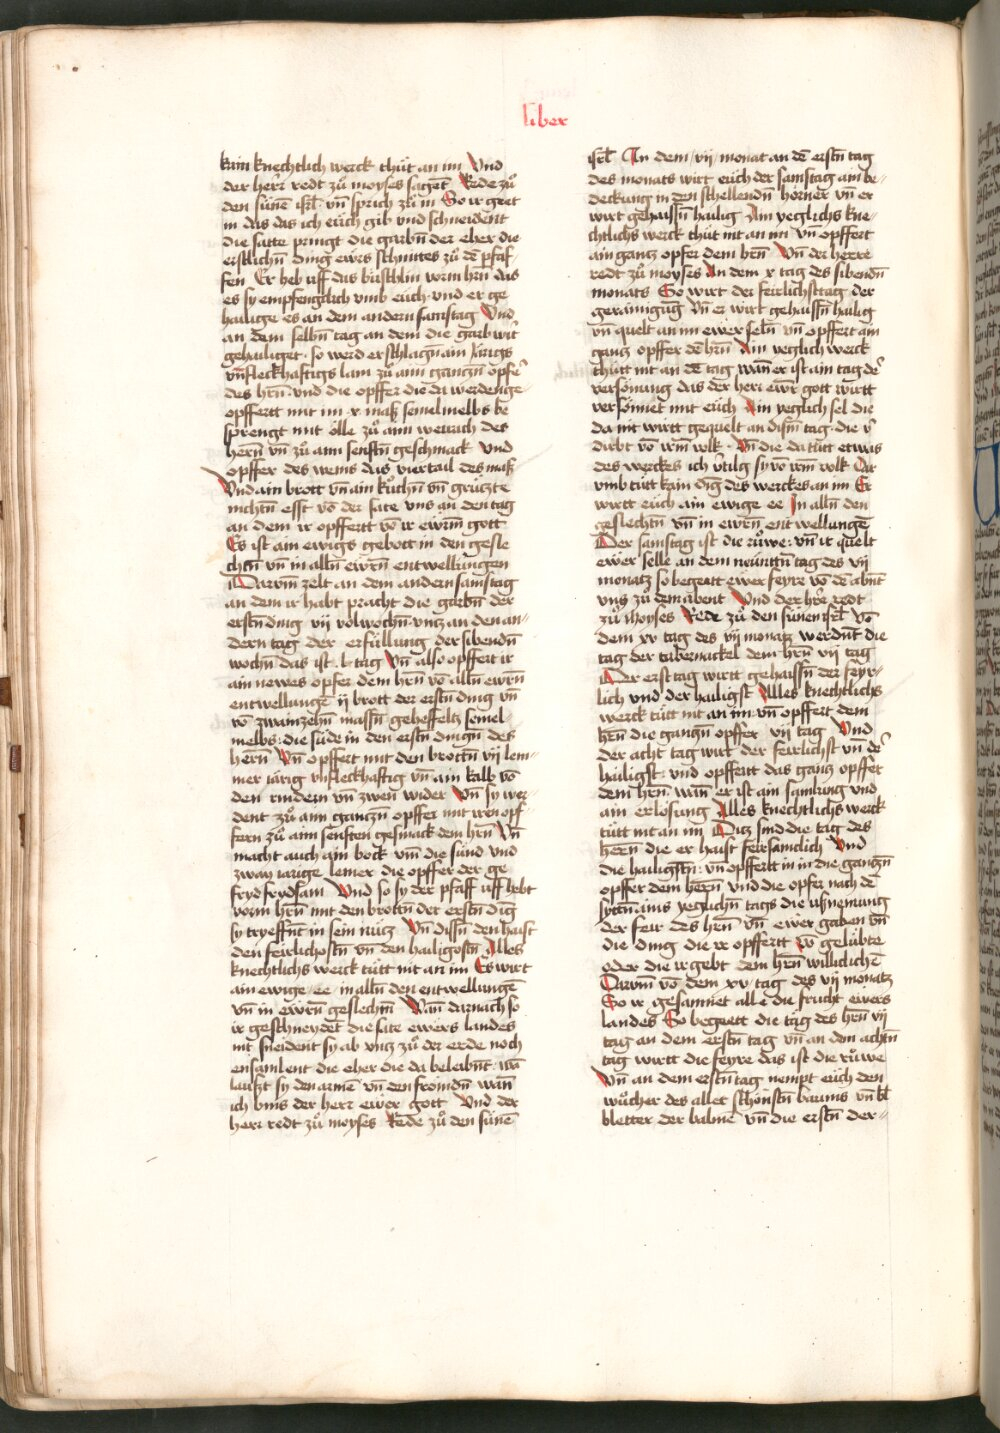 liber
kain knechtlich werck thüt an im Und
der herr redt zů moyses sagēt Rede zů
den sünē isrl̄ vn̄ sprich zů in So ir geet
in das das ich eüch gib vnd schneident
die satte pringt die garbn̄ der eher die
erstlichn̄ ding ewrs schnittes zů dē pfaf-
fen Er heb uff das büschlin vorm hrn̄ das
es sy empfengclich vmb eüch vnd er ge
hailige es an dem andern samstag Und
an dem selbn̄ tag an dem die garb wirt
gehailiget · so werd erschlagn̄ ain Järigs
vn̄fleckhaftigs lam zů aim ganczn̄ opfer
des hrn̄ · vnd die opffer die da werdenge
opffertt mit im · x · maß semelmelbs be
sprengt mit ölle zů aim weirach des
herrn̄ vn̄ zů aim senftn̄ geschmack vnd
opffer des weins das viertail des maß
Vnd ain brott vn̄ ain kůchn̄ vn̄ grüczte
nichtn̄ esst vō der sate vns an den tag
an dem ir opffertt vō ir ewrm gott
Es ist ain ewigs gebott in den gesle
chtn̄ vn̄ in alln̄ ewrn̄ entwellungen
Darum̄ zelt an dem andern samstag
an dem ir habt pracht die garbn̄ der
erstn̄ ding vij volwochn̄ vncz an den an-
dern tag der erfüllung der sibendn̄
wochn̄ das ist · l · tag Vn̄ also opffert ir
ain newes opfer dem hrn̄ vō alln̄ ewrn̄
entwellungē ij brott der erstn̄ ding vn̄
vō zwainzehn̄ massn̄ geheffeltz semel-
melbs · die süde in den erstn̄ dingn̄ des
herrn̄ Vn̄ opffert mit den brottn̄ vij lem-
mer iärig vn̄fleckhaftig vn̄ ain kalb vō
den rindern vn̄ zwen wider Vn̄ sy wer-
dent zů aim ganczn̄ opffer mit iren opf-
fern zů aim senften gesmack dem hrn̄ Vn̄
macht auch ain bock vm̄ die sünd vnd
zway iarige lemer die opffer der ge
fryd frydsam Und so sy der pfaff uff hebt
vorm hrn̄ mit den brottn̄ der erstn̄ dīg
sy tryeffnt in sein nücz Vn̄ dissn̄ den haist
den feirlichostn̄ vn̄ den hailigostn̄ Alles
knechtlichs werck tütt nit an im Es wirt
ain ewige · ee · in alln̄ den entwellungē
vn̄ in ewrn̄ geslechtn̄ Wan̄ darnach so
ir geschneydet die sate ewers landes
nit sneident sy ab vncz zů der erde noch
ensamlent die eher die da beleibn̄t · wā
lauszt sy den armē vn̄ den fromdn̄ wan̄
ich bins der herr ewer gott Vnd der
herr redt zů moyses Rede zů den sünē
isrl̄ In dem · vij · monat an dē erstn̄ tag
des monats wirt eüch der samstag ain be-
deckung in den schellendn̄ hörner vn̄ er
wirt gehaissn̄ hailig Ain yeglichs kne-
chtlichs werck thüt nit an im vn̄ opffert
ain gancz opfer dem hrn̄ Vn̄ der herre
redt zů moyses An dem x tag des sibendn̄
monats So wirt der feirlichst tag der
gerainigūg Vn̄ er wirt gehaissn̄ hailig
vn̄ quelt an im ewer seln̄ vn̄ opffert ain
gancz opffer dē hrn̄ Ain yeglich werck
thütt nit an dē tag wan̄ er ist ain tag dē
versönung das der herr ewr gott wirtt
versönnet mit eüch Ain yeglich sel die
da nit wirtt gequelt an disn̄ tag · die v̄
dirbt vō irm volk · Vn̄ die da tütt etwas
des werckes ich v̄tilg sy vō irm volk Dar
vmb tütt kain dīg des werckes an im Er
wirtt eüch ain ewige ee In alln̄ den
geslechtn̄ vn̄ in ewrn̄ entwellungē
Der samstag ist die růwe: vn̄ ir quelt
ewer selle an dem neünttn̄ tag des vij
monatz so begeatt ewer feyre vō dē abnt
vns zů dem abent Und der hre redt
zů moyses Rede zů den sünen isrl̄ Vō
dem xv tag des vij monatz werdnt die
tag der tabernackel dem hrn̄ vij tag
Der erst tag wirtt gehaissn̄ der feyr-
lich vnd der hailigst Alles knechtlichs
werck tütt nit an im · vn̄ opffert dem
hrn̄ die ganczn̄ opffer vij tag Und
der acht tag wirt der feirlichst vn̄ dē
hailigst · vnd opffertt das gancz opffer
dem hrn̄ wan̄ er ist ain samlung vnd
ain erlösung Alles knechtlichs werck
tütt nit an im Ditz sind die tag des
herrn̄ die er haist feirsamclich Und
die hailigstn̄ · vn̄ opffertt in in die ganczn̄
opffer dem herrn̄ vnd die opfer nach dē
syttn̄ ains yeglichn̄ tags die vßnemung
der feir des hrn̄ vn̄ ewer gaben vn̄
die ding die ir opffertt vō gelübte
oder die ir gebt dem hrn̄ williclichē
Darum̄ vō dem xv · tag des vij monatz
So ir gesamnet alle die frücht ewers
landes So begeett die tag des hrn̄ vij
tag an dem erstn̄ tag vn̄ an dem achtn̄
tag wirtt die feyre das ist die růwe
Vn̄ an dem erstn̄ tag nempt eüch den
wůcher des aller schönstn̄ baums vn̄
bletter der balmē vn̄ die erstn̄ der-